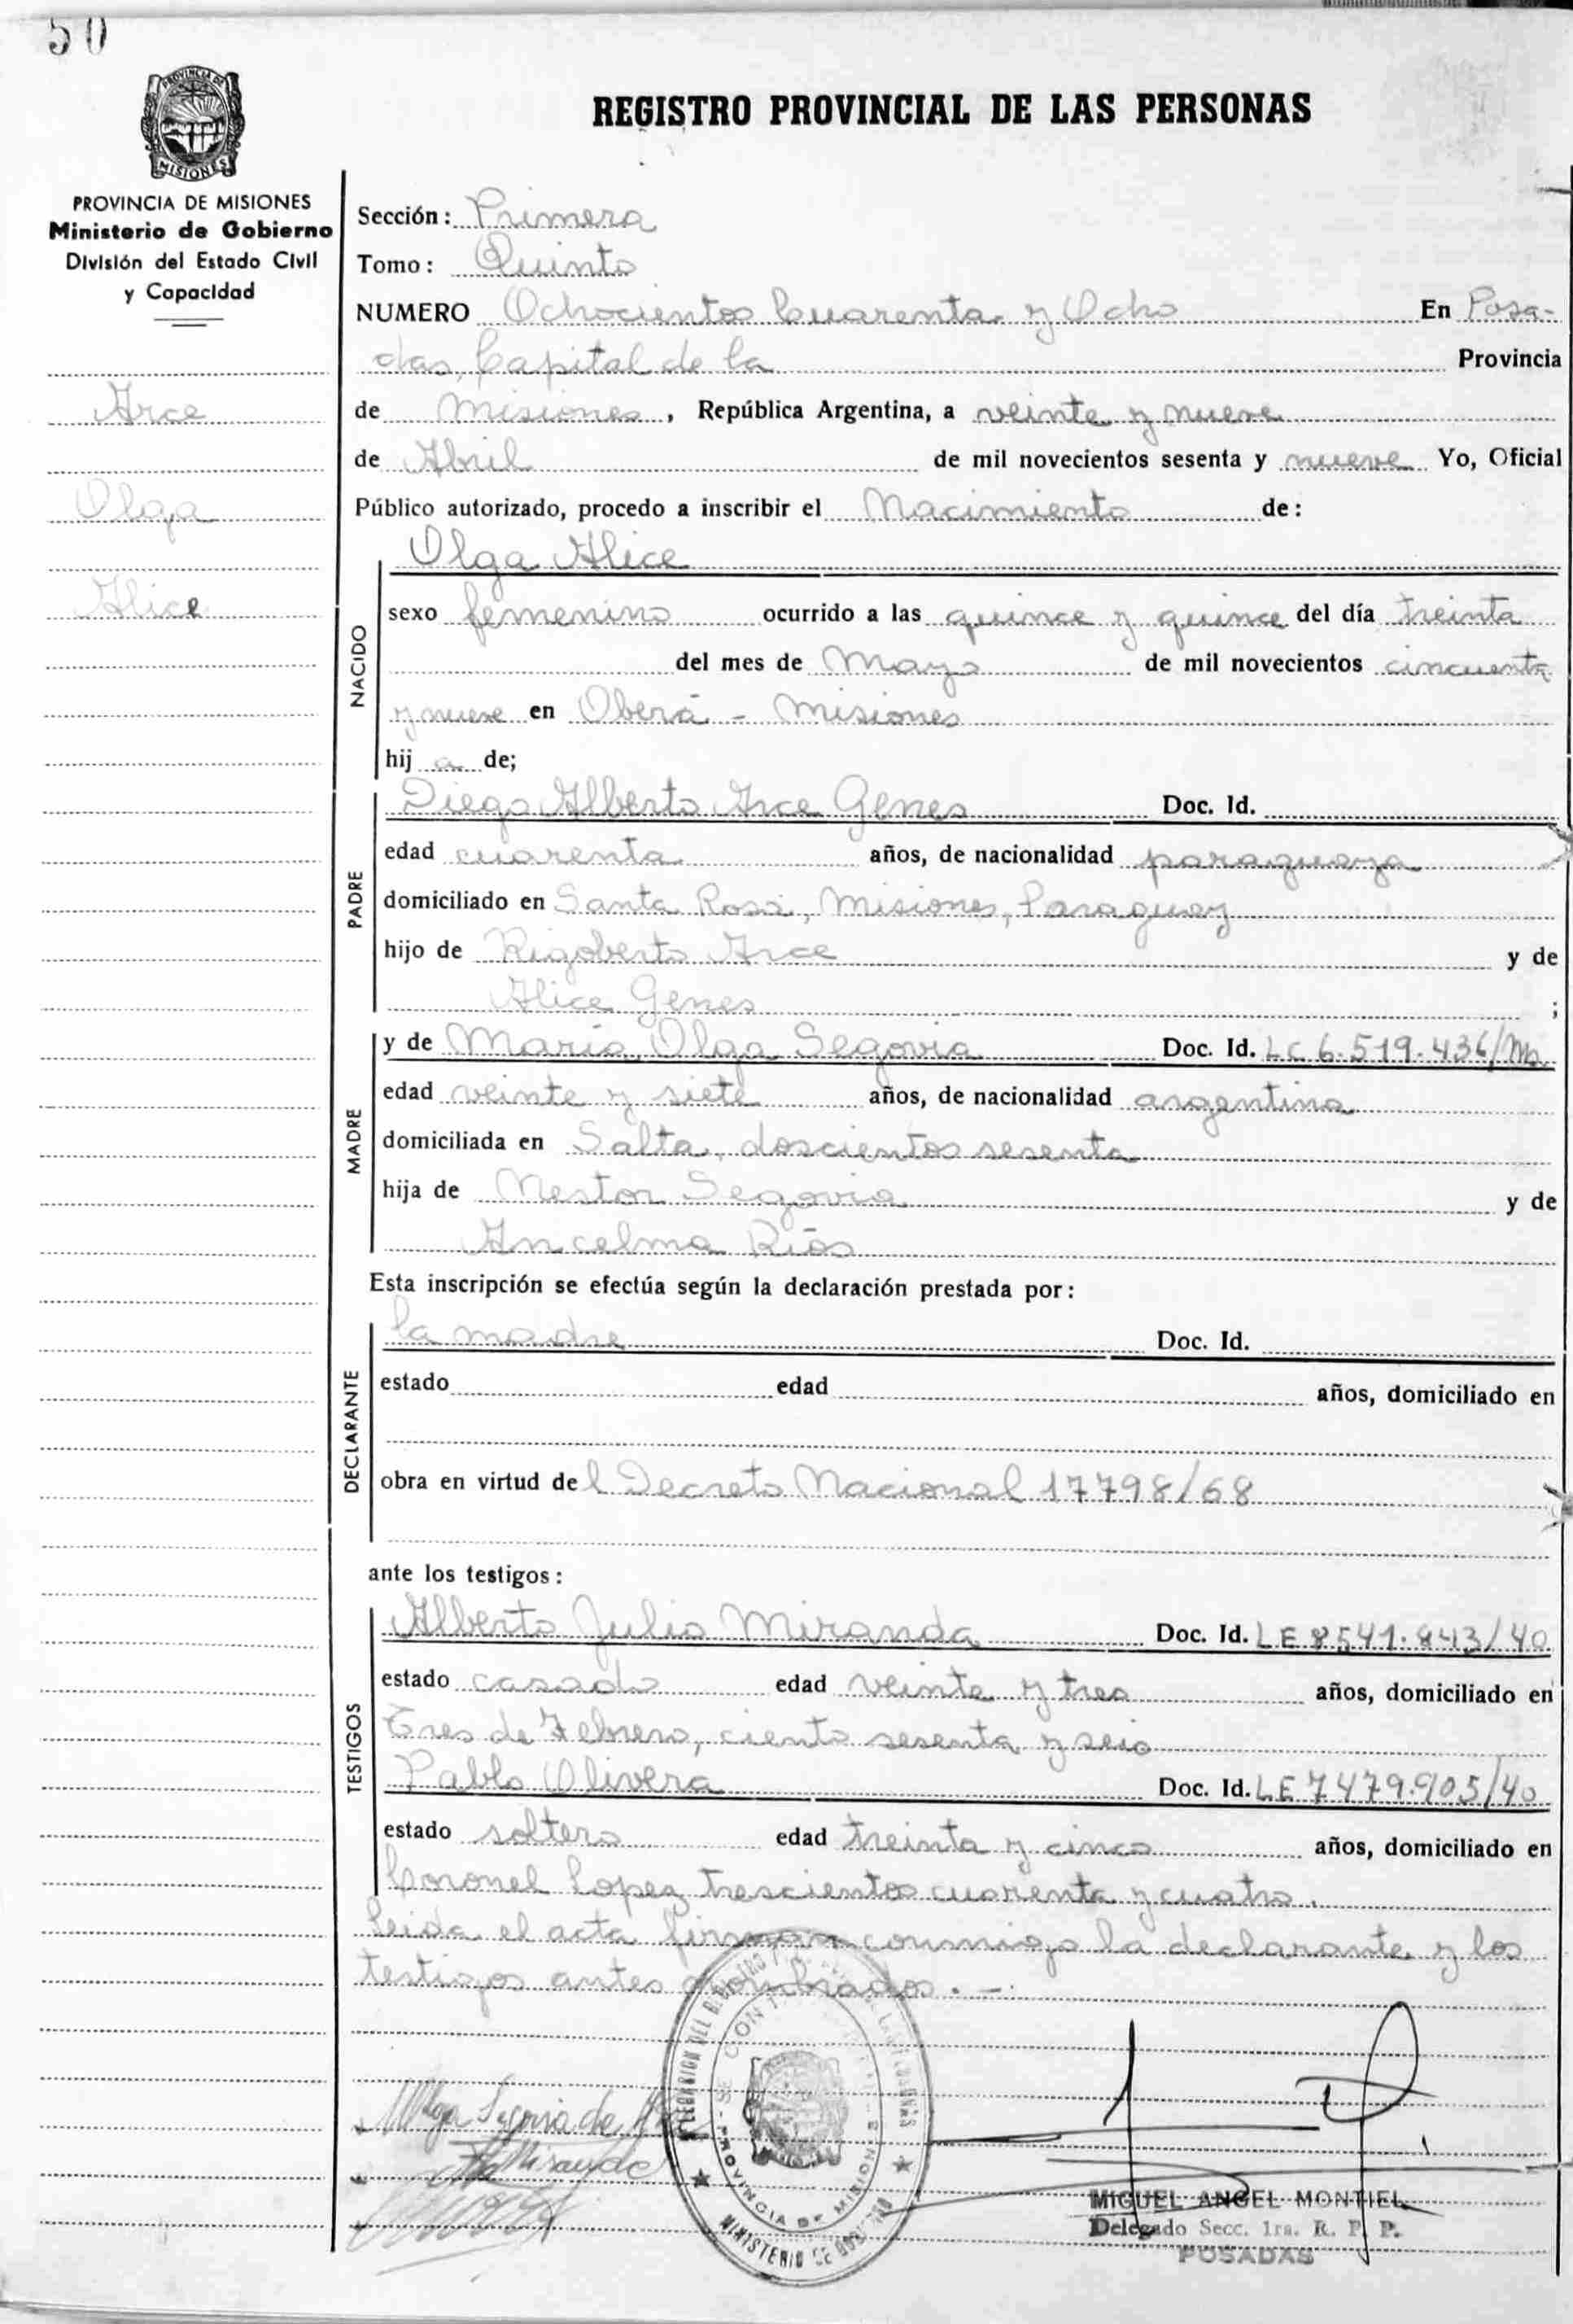 50
PROVINCIA DE
MISIONES
REGISTRO PROVINCIAL DE LAS PERSONAS
PROVINCIA DE MISIONES
Ministerio de Gobierno
División del Estado Civil
y Capacidad
Arce
Olga
Alice
Sección: Primera
Tomo: Quinto
NUMERO Ochocientos Cuarenta y Ocho En Posa-
das, Capital de la Provincia
de Misiones, República Argentina, a veinte y nueve
de Abril de mil novecientos sesenta y nueve Yo, Oficial
Público autorizado, procedo a inscribir el Nacimiento de:
NACIDO
Olga Alice
sexo femenino ocurrido a las quince y quince del día treinta
del mes de Mayo de mil novecientos cincuenta
y nueve en Oberá - Misiones
hij a de;
PADRE
Diego Alberto Arce Genes Doc. Id.
edad cuarenta años, de nacionalidad paraguaya
domiciliado en Santa Rosa, Misiones, Paraguay
hijo de Rigoberto Arce y de
Alice Genes ;
MADRE
y de María Olga Segovia Doc. Id. LC 6.519.436/M
edad veinte y siete años, de nacionalidad argentina
domiciliada en Salta, doscientos sesenta
hija de Nestor Segovia y de
Ancelma Ríos
Esta inscripción se efectúa según la declaración prestada por:
DECLARANTE
la madre Doc. Id.
estado edad años, domiciliado en
obra en virtud de l Decreto Nacional 17798/68
ante los testigos:
TESTIGOS
Alberto Julio Miranda Doc. Id. LE 8541.843/40
estado casado edad veinte y tres años, domiciliado en
Tres de Febrero, ciento sesenta y seis
Pablo Olivera Doc. Id. LE 7479.905/40
estado soltero edad treinta y cinco años, domiciliado en
Coronel Lopez trescientos cuarenta y cuatro.
Leida el acta firman conmigo la declarante y los
testigos antes nombrados. -
MOlga Segovia de
Miranda
DEL REGISTRO
PROVINCIA DE MISIONES
MINISTERIO DE GOBIERNO
MIGUEL ANGEL MONTIEL
Delegado Secc. 1ra. R. P. P.
POSADAS